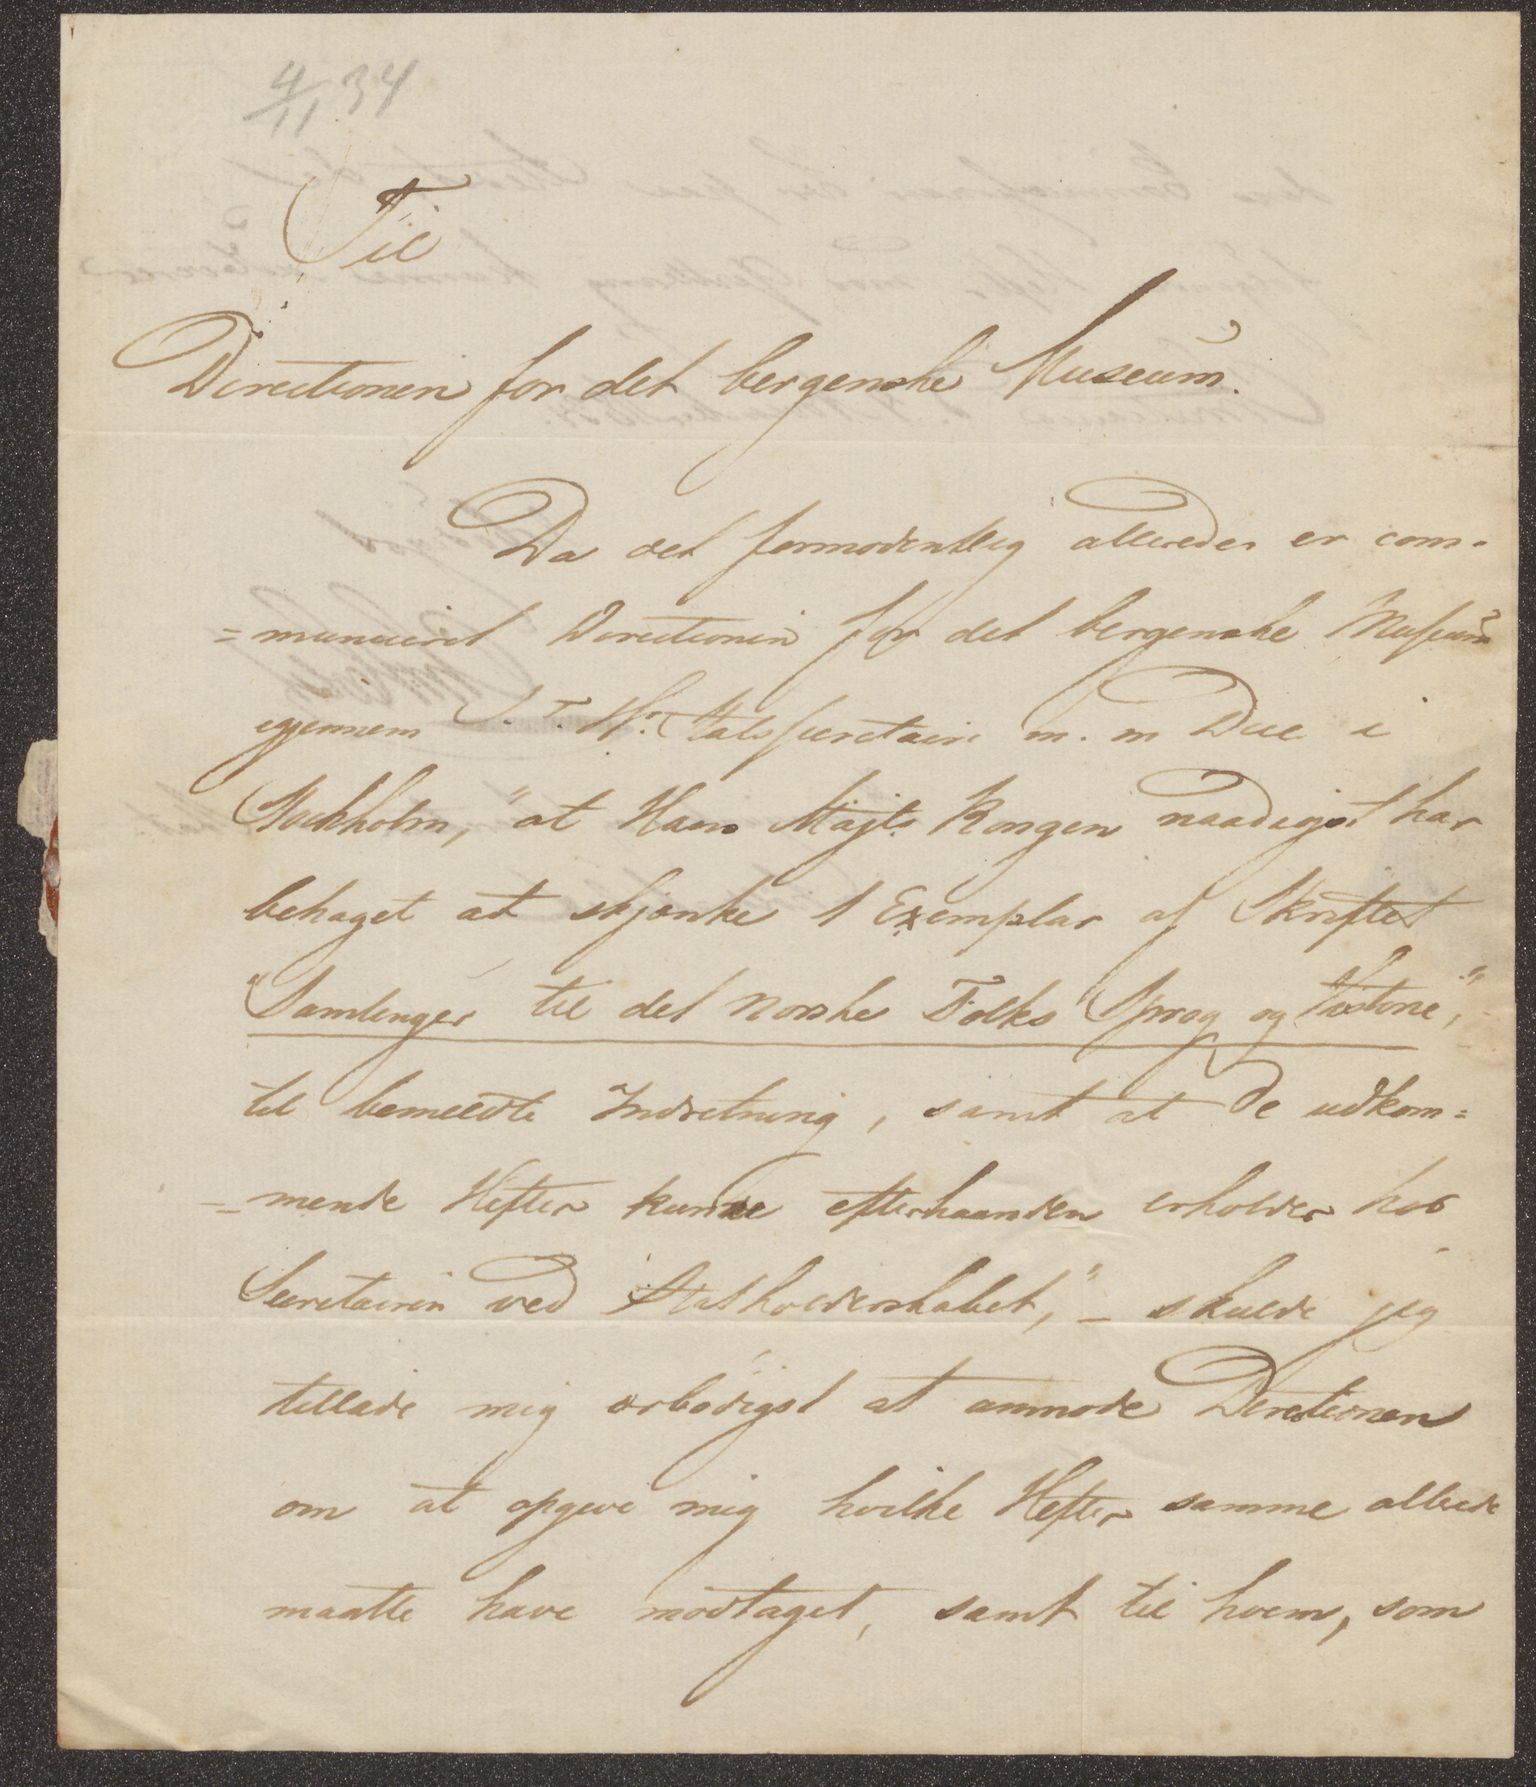 4/11 34
Til
Directionen for det bergenske Museum.
Da det formodentlig allerede er com-
=municeret Directionen for det bergenske Museum
igjennem S. T. Hr. Statssecretaire m. m Due i
Stockholm, "at Hans Majts Kongen naadigst har
behaget at skjænke 1 Exemplar af Skriftet
"Samlinger til det norske Folks Sprog og Historie,"
til bemeldte Indretning, samt at de udkom=
=mende Hefter kunde efterhaanden erholdes hos
Secretairen ved Statholderskabet," – skulde jeg
tillade mig ærbødigst at anmode Directionen
om at opgive mig hvilke Hefter samme allerede
maatte have modtaget, samt til hvem, som